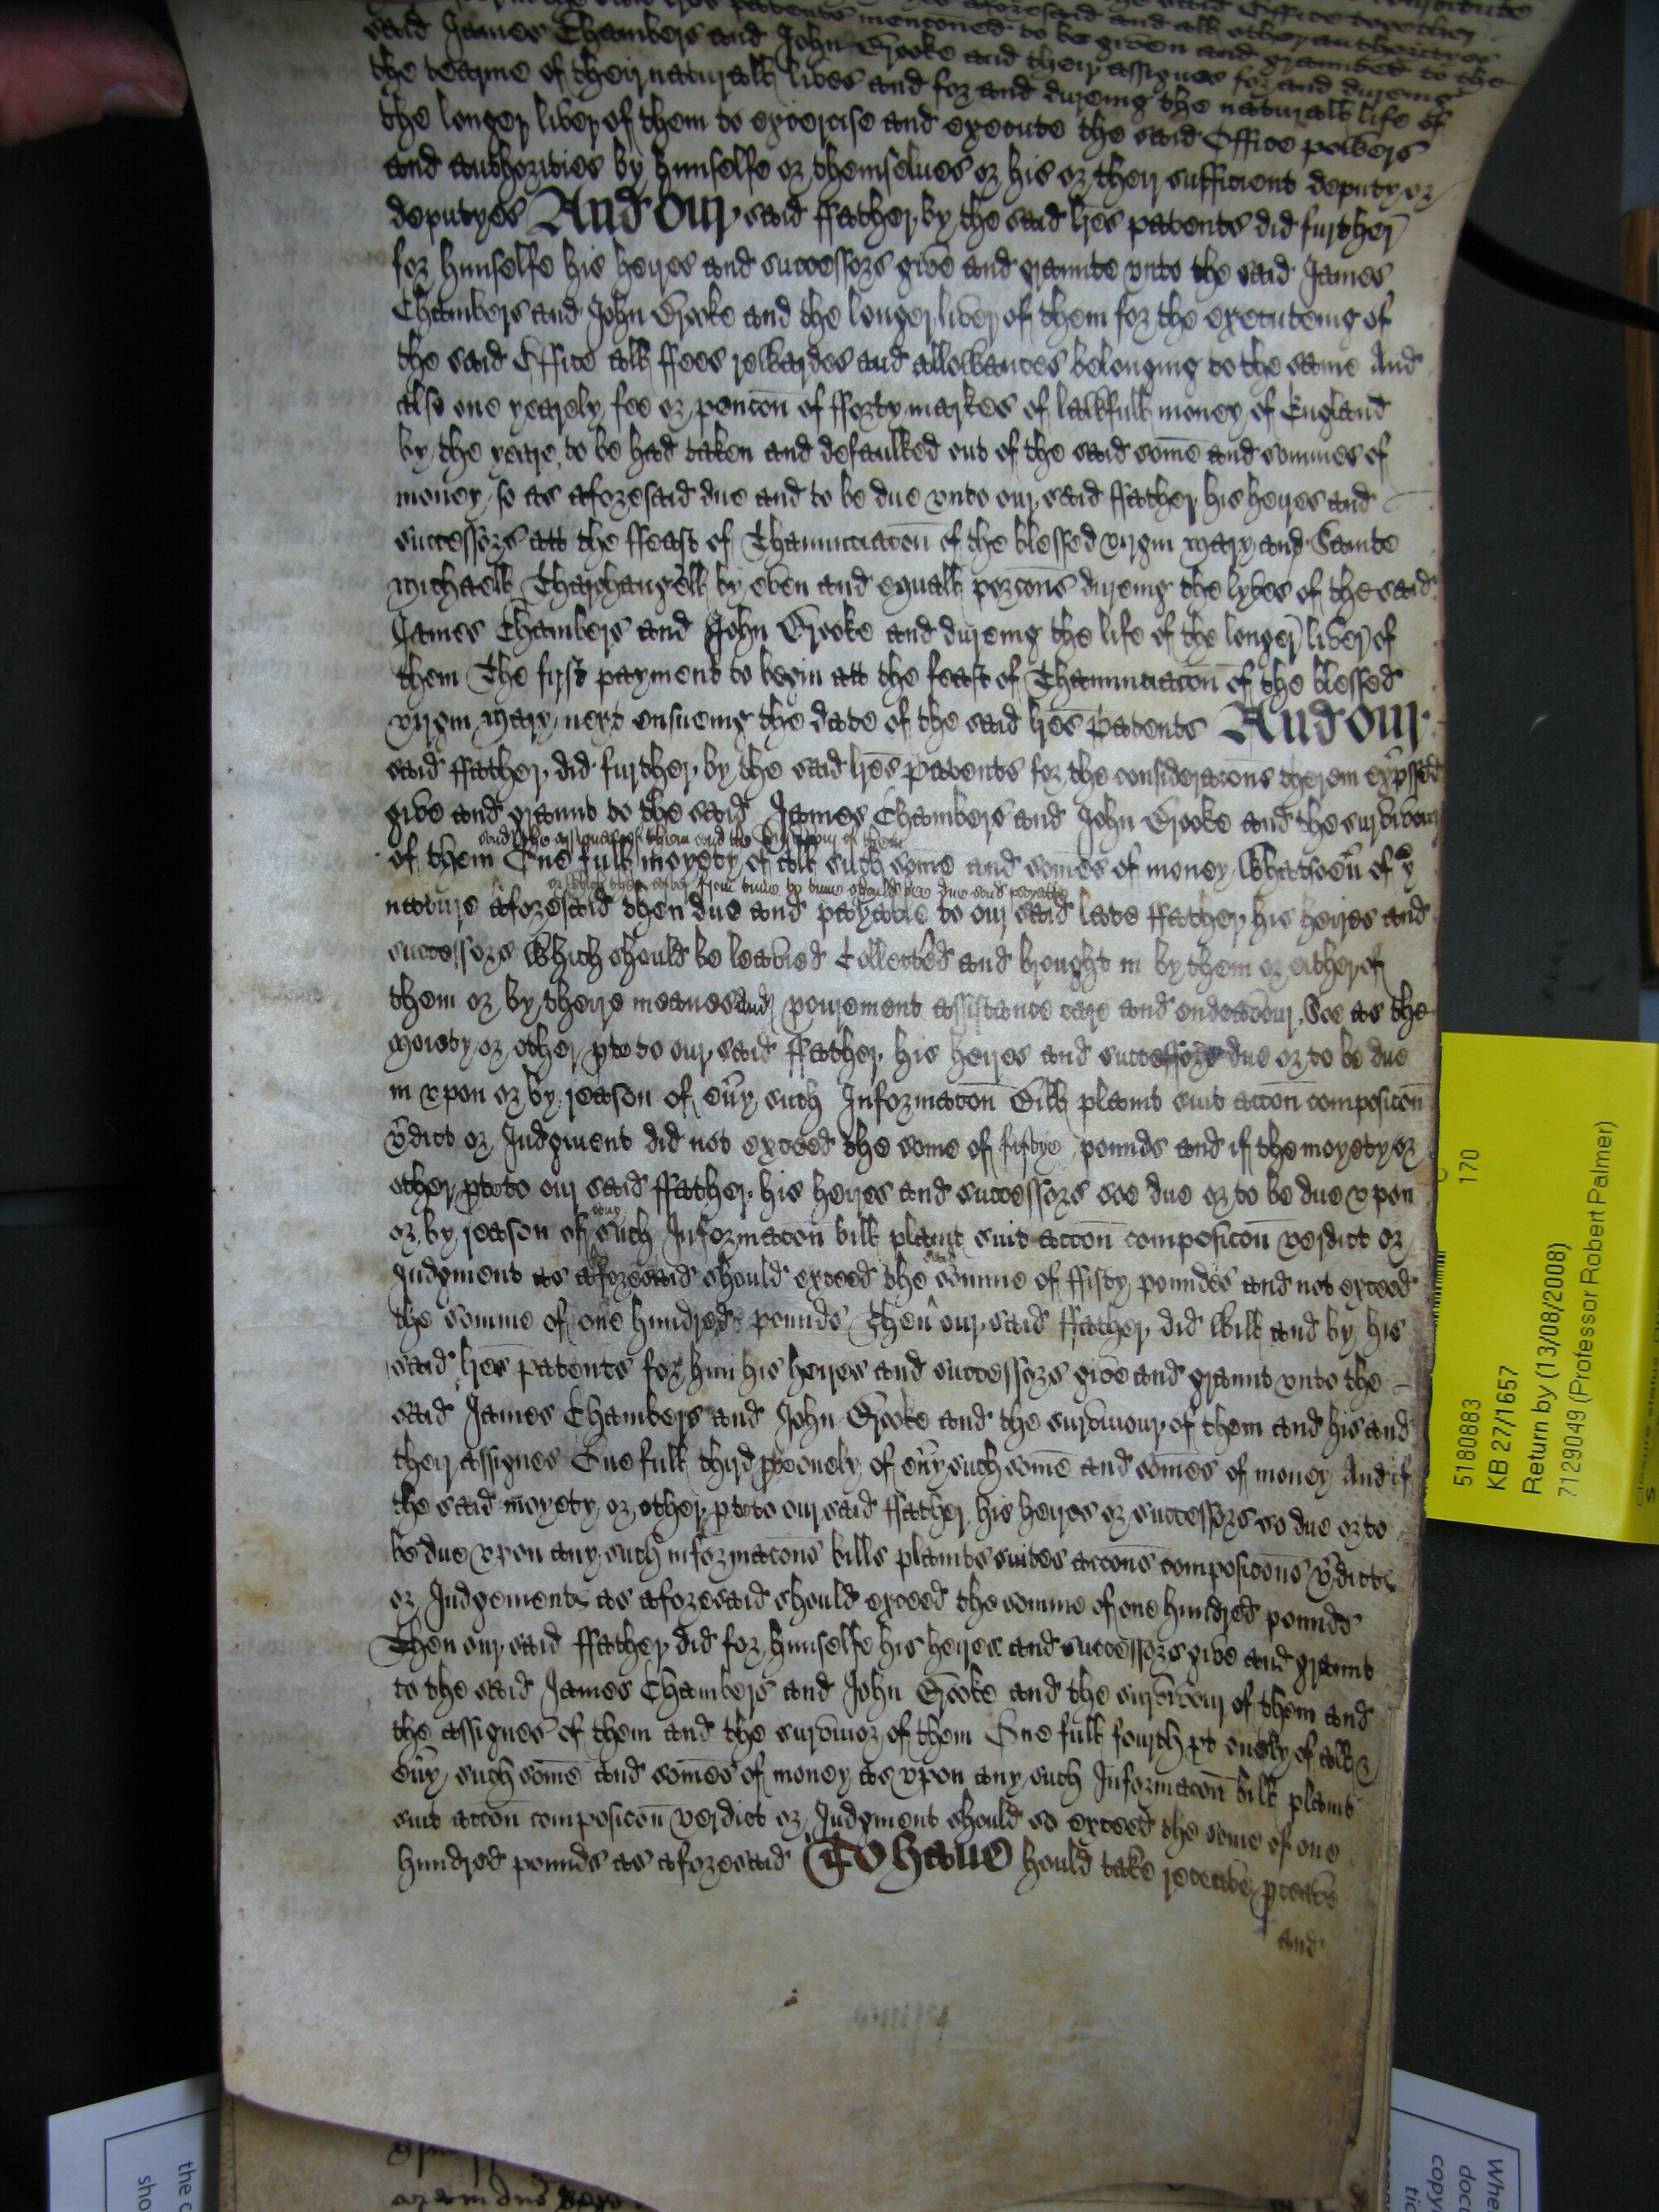 said Office together
lres patents mentioned to be given and graunted to the
said James Chambers and John Brooke and their assignes for and dureing
the tearme of their naturall lives and for and dureing the naturall life of
the longer liver of them to exercise and execute the said Office powers
and authorities by himselfe or themselues or his or their sufficient deputy or
deputyes And our said ffather by the said lres patents did further
for himselfe his heires and successors give and graunte vnto the said James
Chambers and John Brooke and the longer liver of them for the executeing of
the said Office all ffees rewardes and allowances belonging to the same And
also one yearely fee or pencon of fforty markes of lawfull money of England
by the yeare to be had taken and defaulked out of the said some and sommes of
money so as aforesaid due and to be due vnto our said ffather his heires and
successors att the ffeast of Thannunciacon of the blessed virgin Mary and Sainte
Michaell Tharchangell by even and equall porcons dureing the lyves of the said
James Chambers and John Brooke and dureing the life of the longer liver of
them The first payment to begin att the feast of Thannunciacon of the blessed
virgin Mary next ensueing the date of the said lres patents And our
said ffather did further by the said lres patents for the consideracons therein exp'ssed
give and graunt to the said James Chambers and John Brooke and the survivour
and the assignes of them and the survivour of them
of them One full moyety of all such some and somes of money whatsoeu' of y
or which then after from time to time should bee due and payable
nature aforesaid then due and payable to our said late ffather his heires and
successors which should be leavied Collected and brought in by them or either of
them or by theire meanes and p'curement assistance care and endeavour Soe as the
moiety or other p'te to our said ffather his heires and successors due or to be due
in vpon or by reason of eu'y such Informacon Bill plaint suit accon composicon
v'dict or Judgment did not exceed the some of fiftye pounds and if the moyety or
other p'te to our said ffather his heires and successors soe due or to be due vpon
any
or by reason of such Informacon bill plaint suit accon composicon verdict or
said
Judgment as aforesaid should exceed the somme of ffifty poundes and not exceed
the somme of one hundred pounds Then our said ffather did will and by his
said lres patents for him his heires and successors give and graunt vnto the
said James Chambers and John Brooke and the survivour of them and his and
their assignes One full third p'te onely of eu'y such some and somes of money And if
the said moyety or other p'te to our said ffather his heires or successors so due or to
be due vpon any such informacons bills plaints suites accons composicons v'dicts
or Judgements as aforesaid should exceed the somme of one hundred pounds
Then our said ffather did for himselfe his heires and successors give and graunt
to the said James Chambers and John Brooke and the survivour of them and
the assignes of them and the survivor of them One full fourth p't onely of all &
eu'y such some and somes of money as vpon any such Informacon bill plaint
suit accon composicon verdict or Judgment should so exceed the some of one
hundred pounds as aforesaid To haue hould take receive p'ceave
and
5180883 170
KB 27/1657
Return by (13/08/2008)
7129049 (Professor Robert Palmer)
the c
sho
Whe
docu
copy